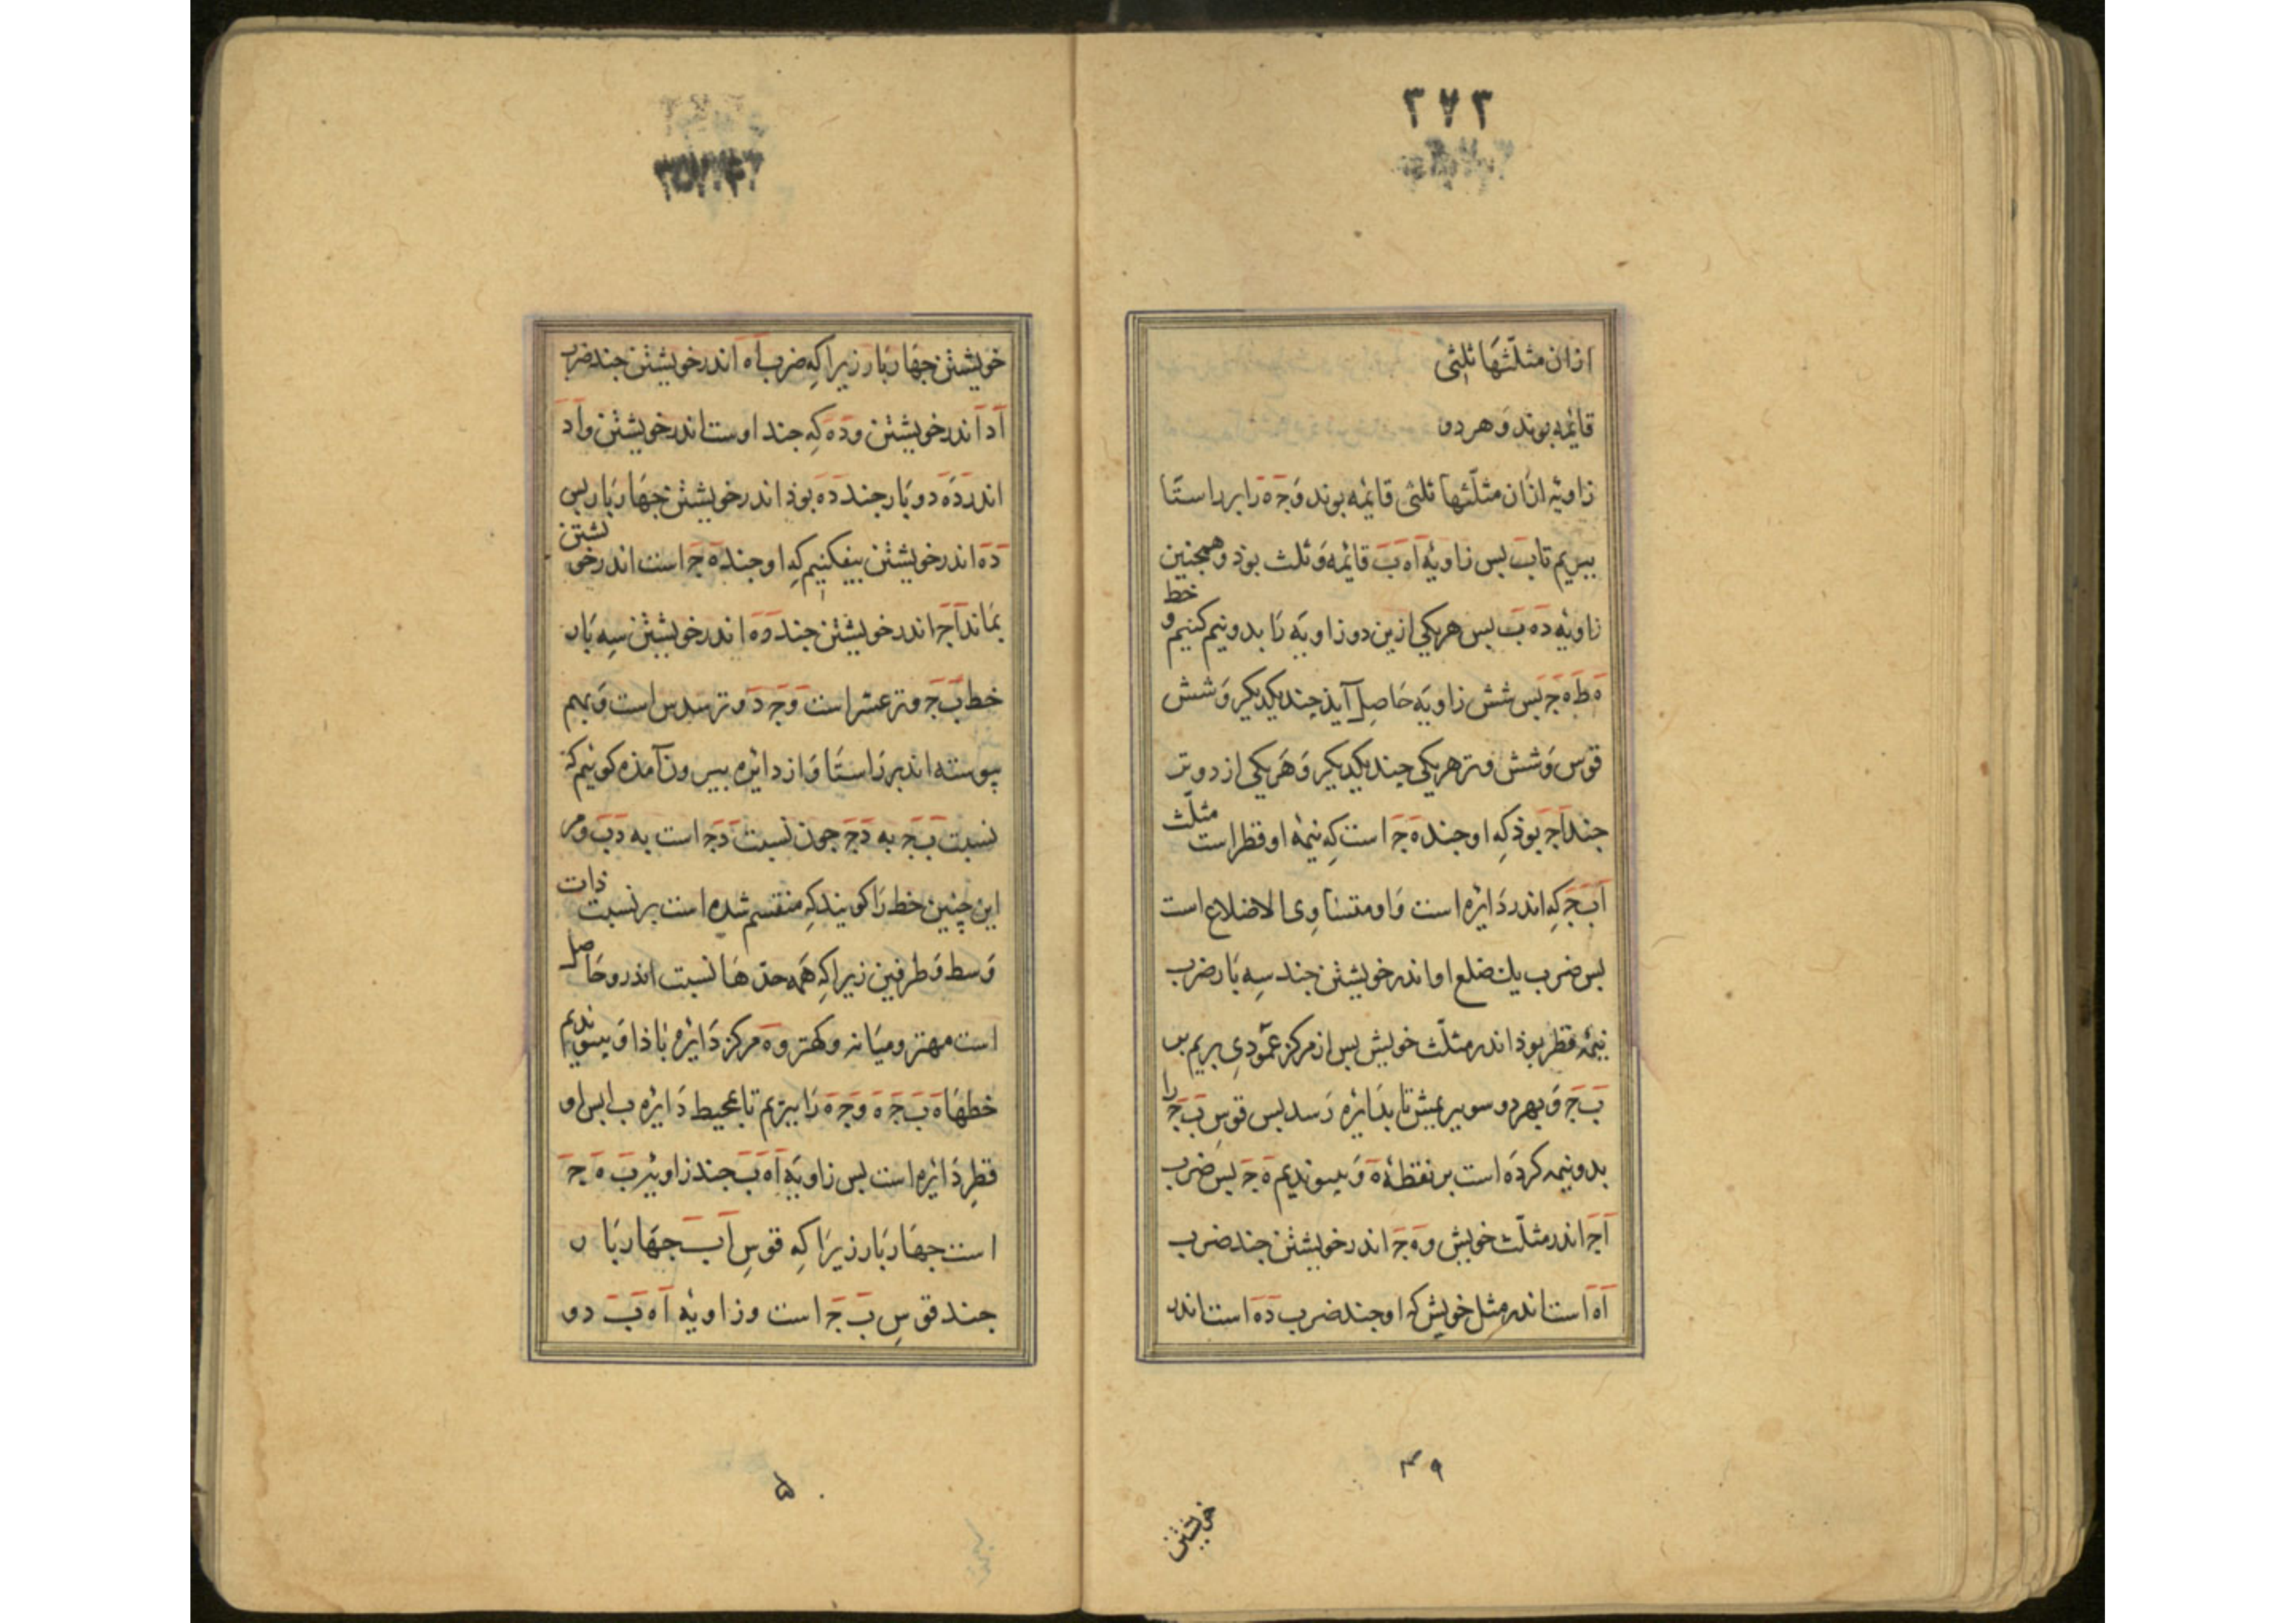 ٢٧٣
ازان مثلّثها ثلثی
قائمه بوند و هر دو
زاویه ازان مثلّثها ثلثی قایمه بوند وَجَه را بر راستا
ببریم تا بَ بس زاویهٔ اَهَ بَ قائمه وَ ثلث بوذ و همجنین
زاویه دَهَ بَ بس هر یکی ازین دو زاویه را بدو نیم کنیم و خط
هَ طَ هَ جَ بس شش زاویه حاصل آیذ جند یکدیکر وَ شش
قوس وَ شش وتر هر یکی جند یکدیکر وَ هر یکی از دو وتر
جند اَجَ بوذ که او جند هَ جَ است که نیمهٔ او قطر است مثلّث
اَبَ جَ که اندر دایره است وَ او متساوی الاضلاع است
بس ضرب یک ضلع او اندر خویشتن جند سه بار ضرب
نیمهٔ قطر بوذ اندر مثلّث خویش بس از مرکز عمودی بریم بر
بَ جَ وَ بهر دو سو ببریمش تا بدایره رسد بس قوس بَ جَ را
بدو نیمه کرده است بر نقطهٔ هَ وَ بیوندیم هَ جَ بس ضرب
اَجَ اندر مثلّث خویش و هَ جَ اندر خویشتن جند ضرب
اَهَ است اندر مثل خویش که او جند ضرب دَهَ است اندر
٤٩
خویشتن
خویشتن جهار بار زیرا که ضرب اَهَ اندر خویشتن جند ضرب
اَدَ اندر خویشتن و دَهَ که جند اوست اندر خویشتن و اَدَ
اندر دَهَ دو بار جند دَهَ بوذ اندر خویشتن جهار بار بس
دَهَ اندر خویشتن بیفکنیم که او جند هَ جَ است اندر خویشتن
بماند اَجَ اندر خویشتن جند دَهَ اندر خویشتن سه بار
خط بَ جَ وتر عشر است وَ جَ دَ وتر سدس است وَ بهم
بیوسته اند بر راستا وَ از دایره بیرون آمذه کوئیم که
نسبت بَ جَ به دَجَ جون نسبت دَجَ است به دَبَ و مر
این چنین خط را کویند که منقسم شده است بر نسبت ذات
وَسط وَ طرفین زیرا که همه حدّها نسبت اندرو حاصل
است مهتر و میانه و کهتر و هَ مرکز دایره باذا وَ بیوندیم
خطها هَ بَ جَ هَ وَ جَ هَ را ببریم تا بمحیط دایره ب ا بس او
قطر دایره است بس زاویه اَهَ بَ جند زاویهٔ بَ هَ جَ
است جهار بار زیرا که قوس اَبَ جهار بار
جند قوس بَ جَ است و زاویه اَهَ بَ دو